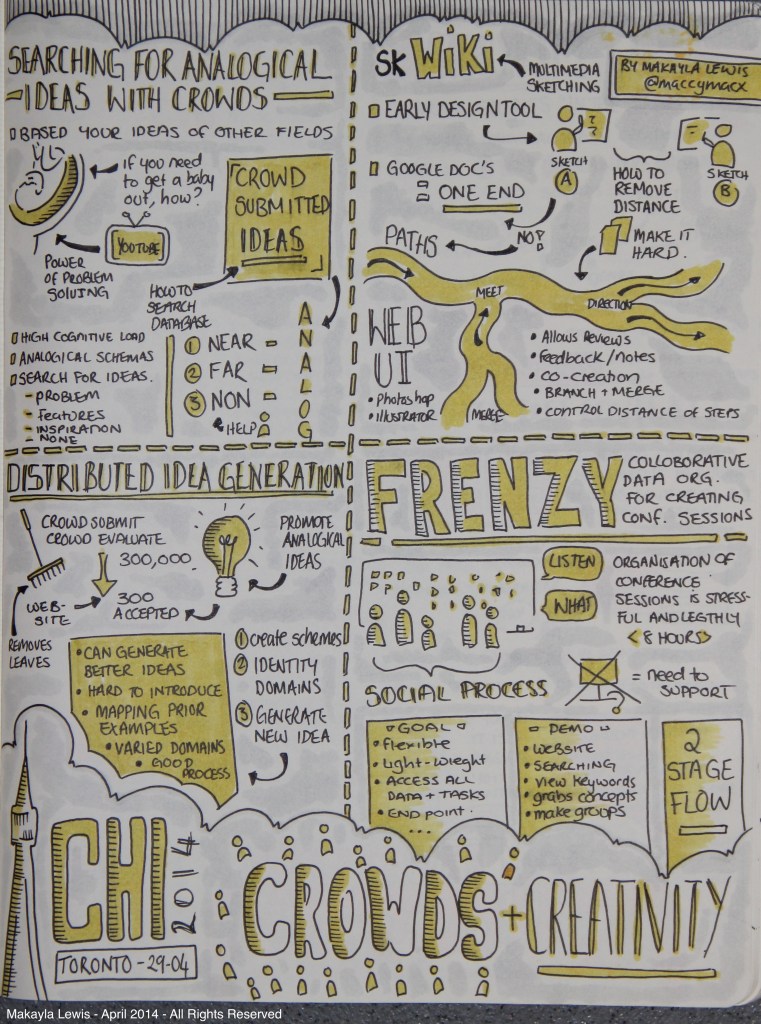 SEARCHING FOR ANALOGICAL
IDEAS WITH CROWDS
BASED YOUR IDEAS OF OTHER FIELDS
If you need
to get a baby
out, how?
YOUTUBE
POWER
OF PROBLEM
SOLVING
CROWD
SUBMITTED
IDEAS
HOW TO
SEARCH
DATABASE
HIGH COGNITIVE LOAD
ANALOGICAL SCHEMAS
SEARCH FOR IDEAS.
- PROBLEM
- features
- INSPIRATION
- NONE
1 NEAR -
2 FAR -
3 NON -
& HELP
ANALOG
SK WIKI
MULTIMEDIA
SKETCHING
BY MAKAYLA LEWIS
@maccymacx
EARLY DESIGN TOOL
GOOGLE DOC'S
ONE END
SKETCH
A
HOW TO
REMOVE
DISTANCE
SKETCH
B
NO?
PATHS
MAKE IT
HARD.
MEET
DIRECTION
MERGE
WEB
UI
• Photoshop
• ILLUSTRATOR
• Allows Reviews
• Feedback/notes
• CO-CREATION
• BRANCH + MERGE
• CONTROL DISTANCE OF STEPS
DISTRIBUTED IDEA GENERATION
CROWD SUBMIT
CROWD EVALUATE
300,000
300
ACCEPTED
WEB-
SITE
REMOVES
LEAVES
PROMOTE
ANALOGICAL
IDEAS
• CAN GENERATE
BETTER IDEAS
• HARD TO INTRODUCE
• MAPPING PRIOR
EXAMPLES
• VARIED DOMAINS
• GOOD
PROCESS
1 create schemes
2 IDENTITY
DOMAINS
3 GENERATE
NEW IDEA
FRENZY
COLLOBORATIVE
DATA ORG.
FOR CREATING
CONF. SESSIONS
LISTEN
WHAT
ORGANISATION OF
CONFERENCE
SESSIONS IS STRESS-
FUL AND LEGTHLY
< 8 HOURS>
SOCIAL PROCESS
= need to
SUPPORT
GOAL
• flexible
• Light-wieght
• ACCESS ALL
DATA + TASKS
• END POINT.
...
DEMO
• WEBSITE
• SEARCHING
• view keywords
• grabs concepts
• make groups
2
STAGE
FLOW
CHI
2014
TORONTO - 29-04
CROWDS + CREATIVITY
Makayla Lewis - April 2014 - All Rights Reserved